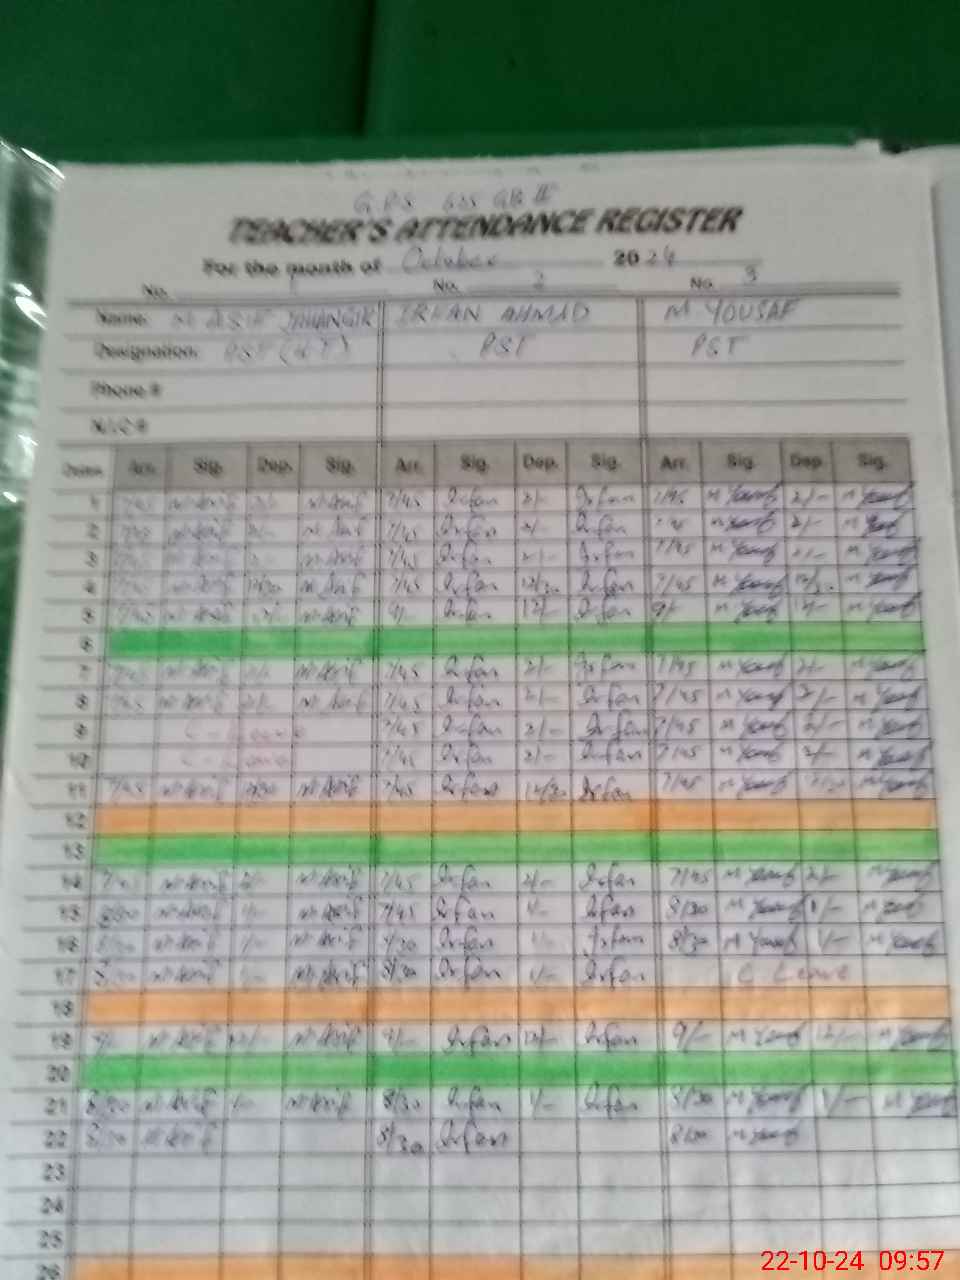 G.P.S 635 GB II
TEACHER'S ATTENDANCE REGISTER
For the month of October 2024
No. 1 No. 2 No. 3
Name: M ASIF JAHANGIR IRFAN AHMAD M YOUSAF
Designation: PST (H.T) PST PST
Phone #
N.I.C #
Dates Arr. Sig. Dep. Sig. Arr. Sig. Dep. Sig. Arr. Sig. Dep. Sig.
1 7/45 M Asif 2/- M Asif 7/45 Irfan 2/- Irfan 7/45 M Yousaf 2/- M Yousaf
2 7/45 M Asif 2/- M Asif 7/45 Irfan 2/- Irfan 7/45 M Yousaf 2/- M Yousaf
3 7/45 M Asif 2/- M Asif 7/45 Irfan 2/- Irfan 7/45 M Yousaf 2/- M Yousaf
4 7/45 M Asif 12/30 M Asif 7/45 Irfan 12/30 Irfan 7/45 M Yousaf 12/30 M Yousaf
5 M Asif 12/- M Asif 9/- Irfan 12/- Irfan 9/- M Yousaf 12/- M Yousaf
6
7 7/45 M Asif 2/- M Asif 7/45 Irfan 2/- Irfan 7/45 M Yousaf 2/- M Yousaf
8 7/45 M Asif 2/- M Asif 7/45 Irfan 2/- Irfan 7/45 M Yousaf 2/- M Yousaf
9 C-Leave 7/45 Irfan 2/- Irfan 7/45 M Yousaf 2/- M Yousaf
10 C-Leave 7/45 Irfan 2/- Irfan 7/45 M Yousaf 2/- M Yousaf
11 7/45 M Asif 12/30 M Asif 7/45 Irfan 12/30 Irfan 7/45 M Yousaf 12/30 M Yousaf
12
13
14 7/45 M Asif 2/- M Asif 7/45 Irfan 2/- Irfan 7/45 M Yousaf 2/- M Yousaf
15 8/30 M Asif 1/- M Asif 7/45 Irfan 1/- Irfan 8/30 M Yousaf 1/- M Yousaf
16 8/30 M Asif 1/- M Asif 8/30 Irfan 1/- Irfan 8/30 M Yousaf 1/- M Yousaf
17 8/30 M Asif 1/- M Asif 8/30 Irfan 1/- Irfan C Leave
18
19 9/- M Asif 12/- M Asif 9/- Irfan 12/- Irfan 9/- M Yousaf 12/- M Yousaf
20
21 8/30 M Asif 1/- M Asif 8/30 Irfan 1/- Irfan 8/30 M Yousaf 1/- M Yousaf
22 8/30 M Asif 8/30 Irfan 8/30 M Yousaf
23
24
25
26
22-10-24 09:57